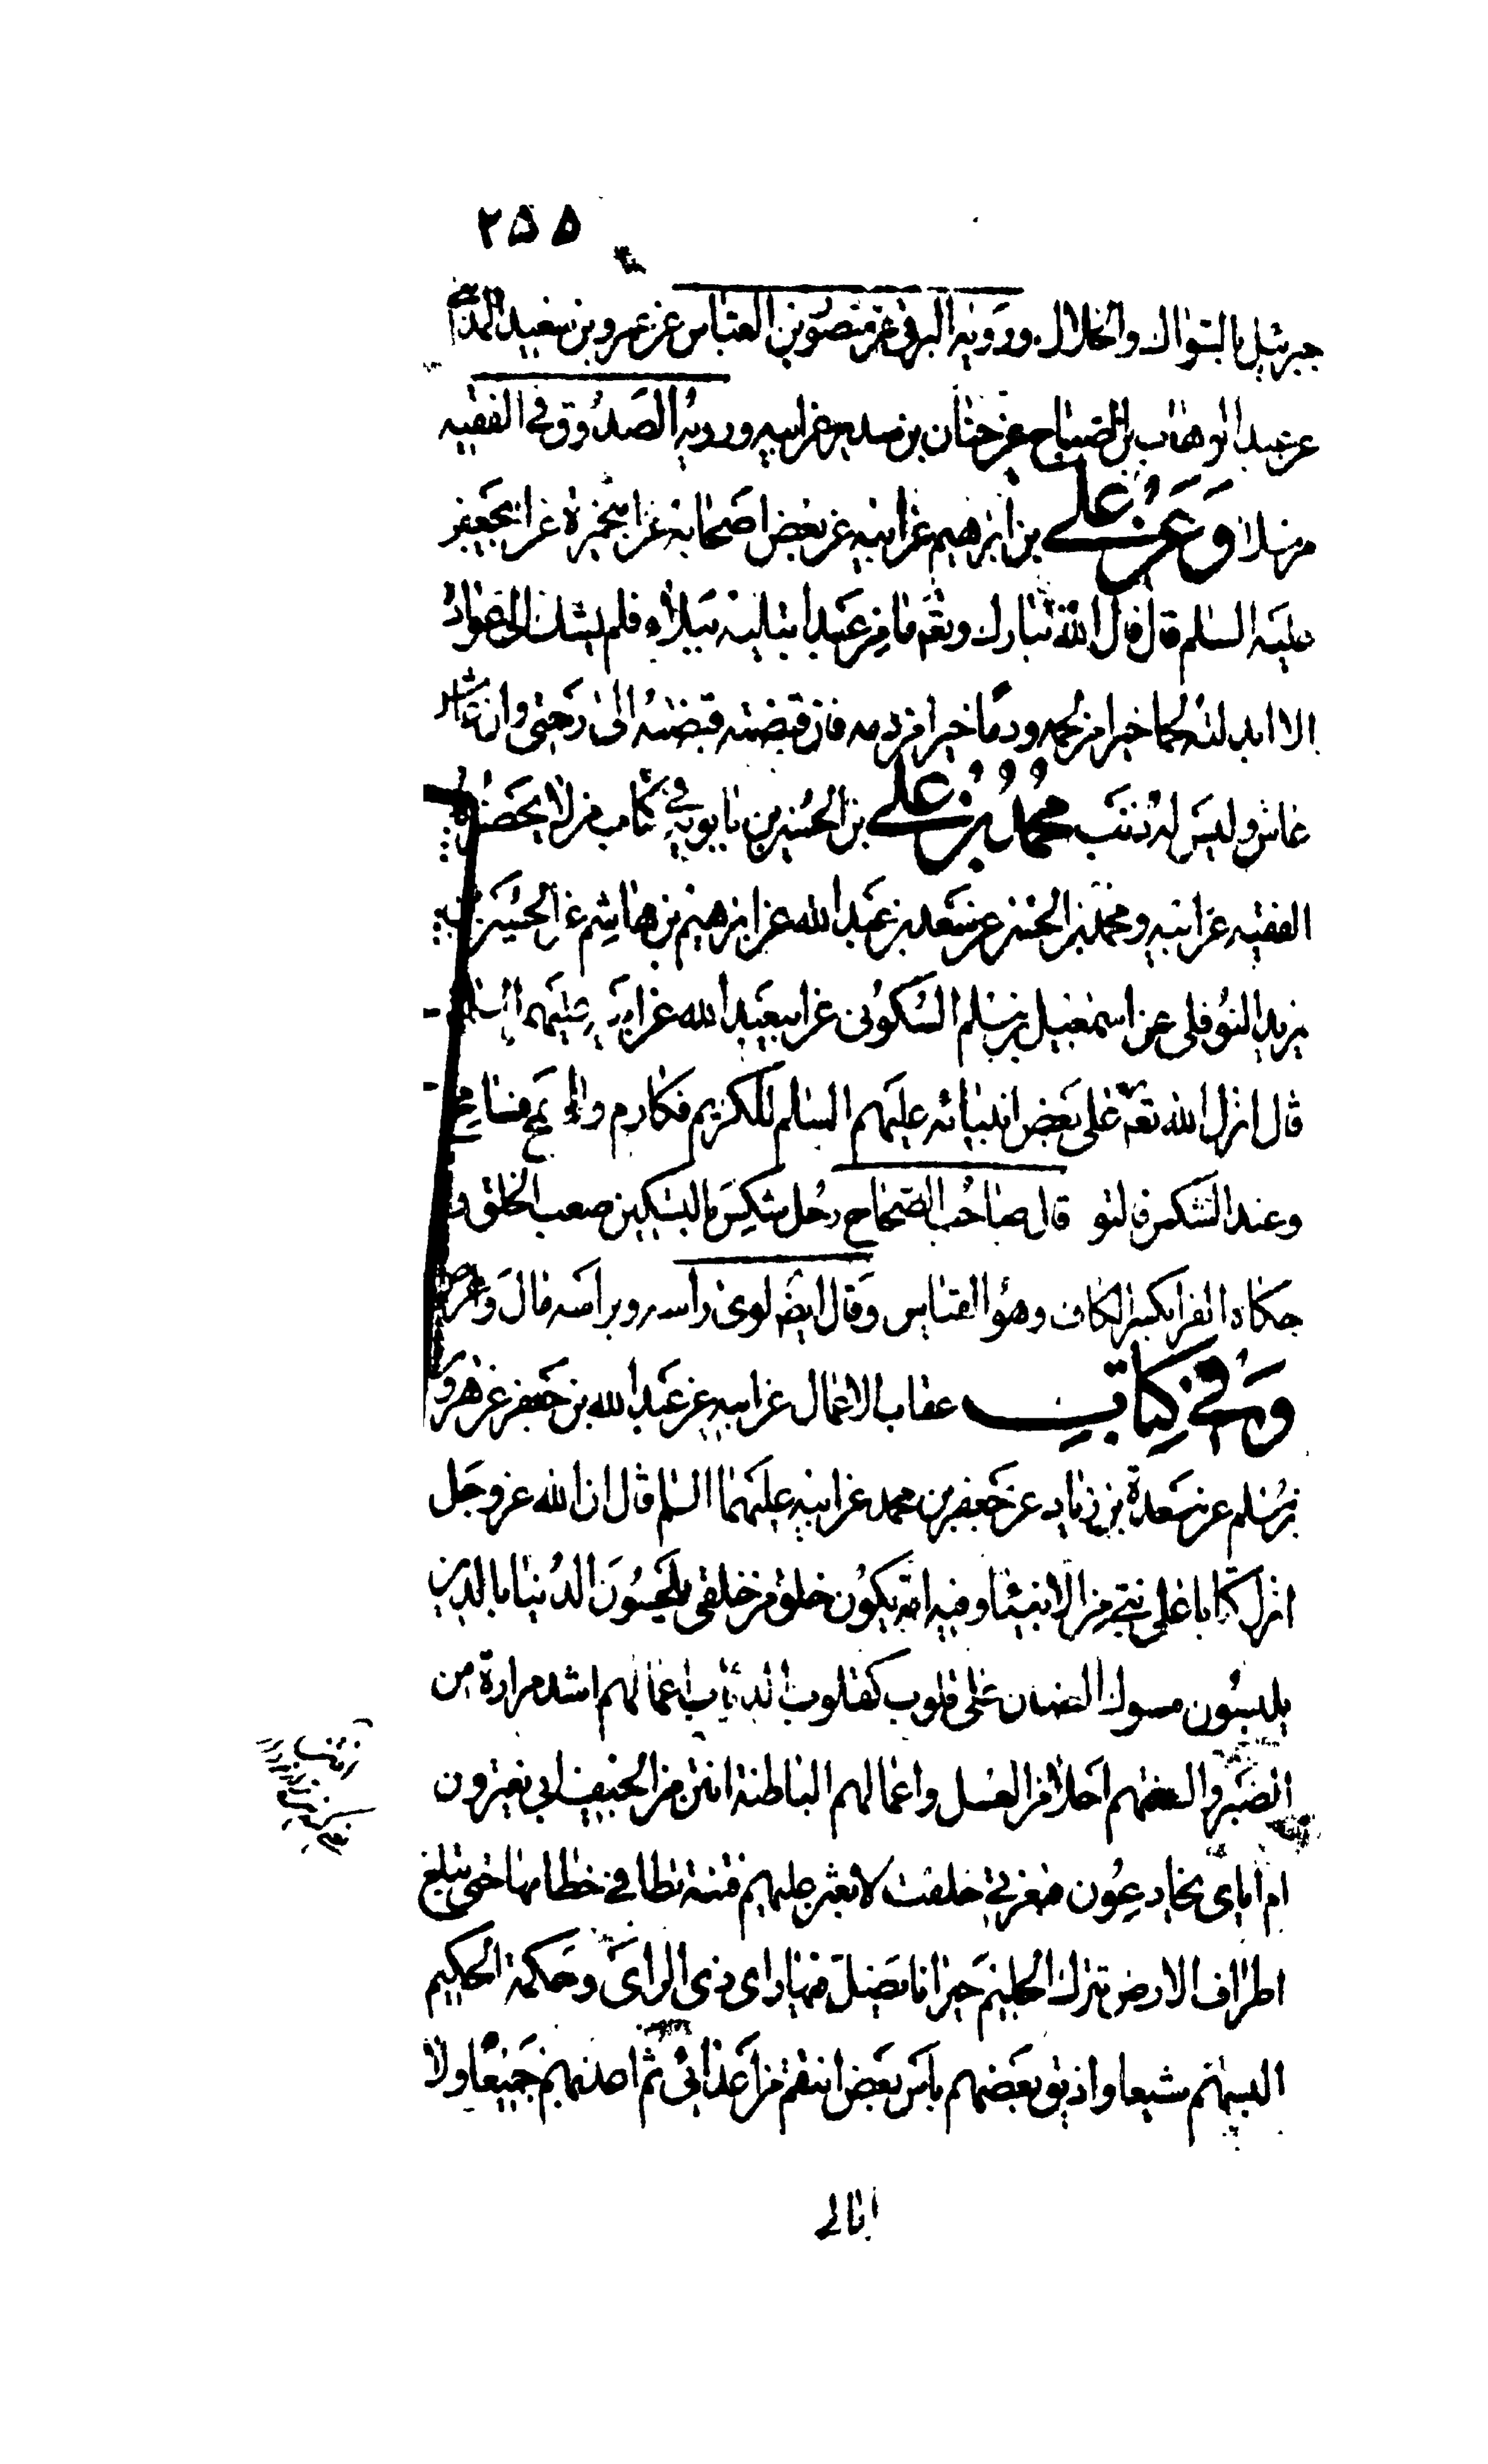 ۲۵۵
جبرئیل بالسواك والخلال ورویه البرقی عن منصور بن العباس عن عمرو بن سعید المدائنی
عن عبد الوهاب بن الصباح عن حنان بن سدیر عن ابیه ورویه الصدوق فی الفقیه
مرسلا وعن علی بن ابرهیم عن ابیه عن بعض اصحابه عن ابی حمزة عن ابی جعفر
علیه السلم قال قال الله تبارك وتعه ما من عبد ابتلیته ببلاء فلم یشك الی عواده
الا ابدلته لحما خیرا من لحمه ودما خیرا من دمه فان قبضته قبضته الی رحمتی وان عاش
عاش ولیس له ذنب محمد بن علی بن الحسین بن بابویه فی كتاب من لا یحضره
الفقیه عن ابیه ومحمد بن الحسن عن سعد بن عبد الله عن ابرهیم بن هاشم عن الحسین بن
یزید النوفلی عن اسمعیل بن مسلم السكونی عن ابی عبد الله عن ابیه علیهم السلم
قال انزل الله تعه علی بعض انبیائه علیهم السلم للكریم فكارم والسمح فسامح
وعند الشكس فالتو قال صاحب الصحاح رجل شكس بالتسكین صعب الخلق و
حكاه الفرا بكسر الكاف وهو القیاس وقال ایضه لوی راسه وبراسه مال واعرض
وفی كتاب عقاب الاعمال عن ابیه عن عبد الله بن جعفر عن هرون
بن مسلم عن مسعدة بن زیاد عن جعفر بن محمد عن ابیه علیهما السلم قال ان الله عز وجل
انزل كتابا علی نبی من الانبیاء وفیه انه یكون خلق من خلقی یلحسون الدنیا بالدین
یلبسون مسوك الضان علی قلوب كقلوب الذیاب اعمالهم اشد مرارة من
الصبر والسنتهم احلا من العسل واعمالهم الباطنة انتن من الجیف ابی یغترون
ام ایای یخادعون فبعزتی حلفت لابعثن علیهم فتنة تطا فی خطامها حتی تبلغ
اطراف الارض تترك الحلیم حیرانا یضل فیها رای ذی الرای وحكمة الحكیم
البسهم شیعا واذیق بعضهم باس بعض انتقم من اعدائی ثم اعذبهم جمیعا ولا
ابالی